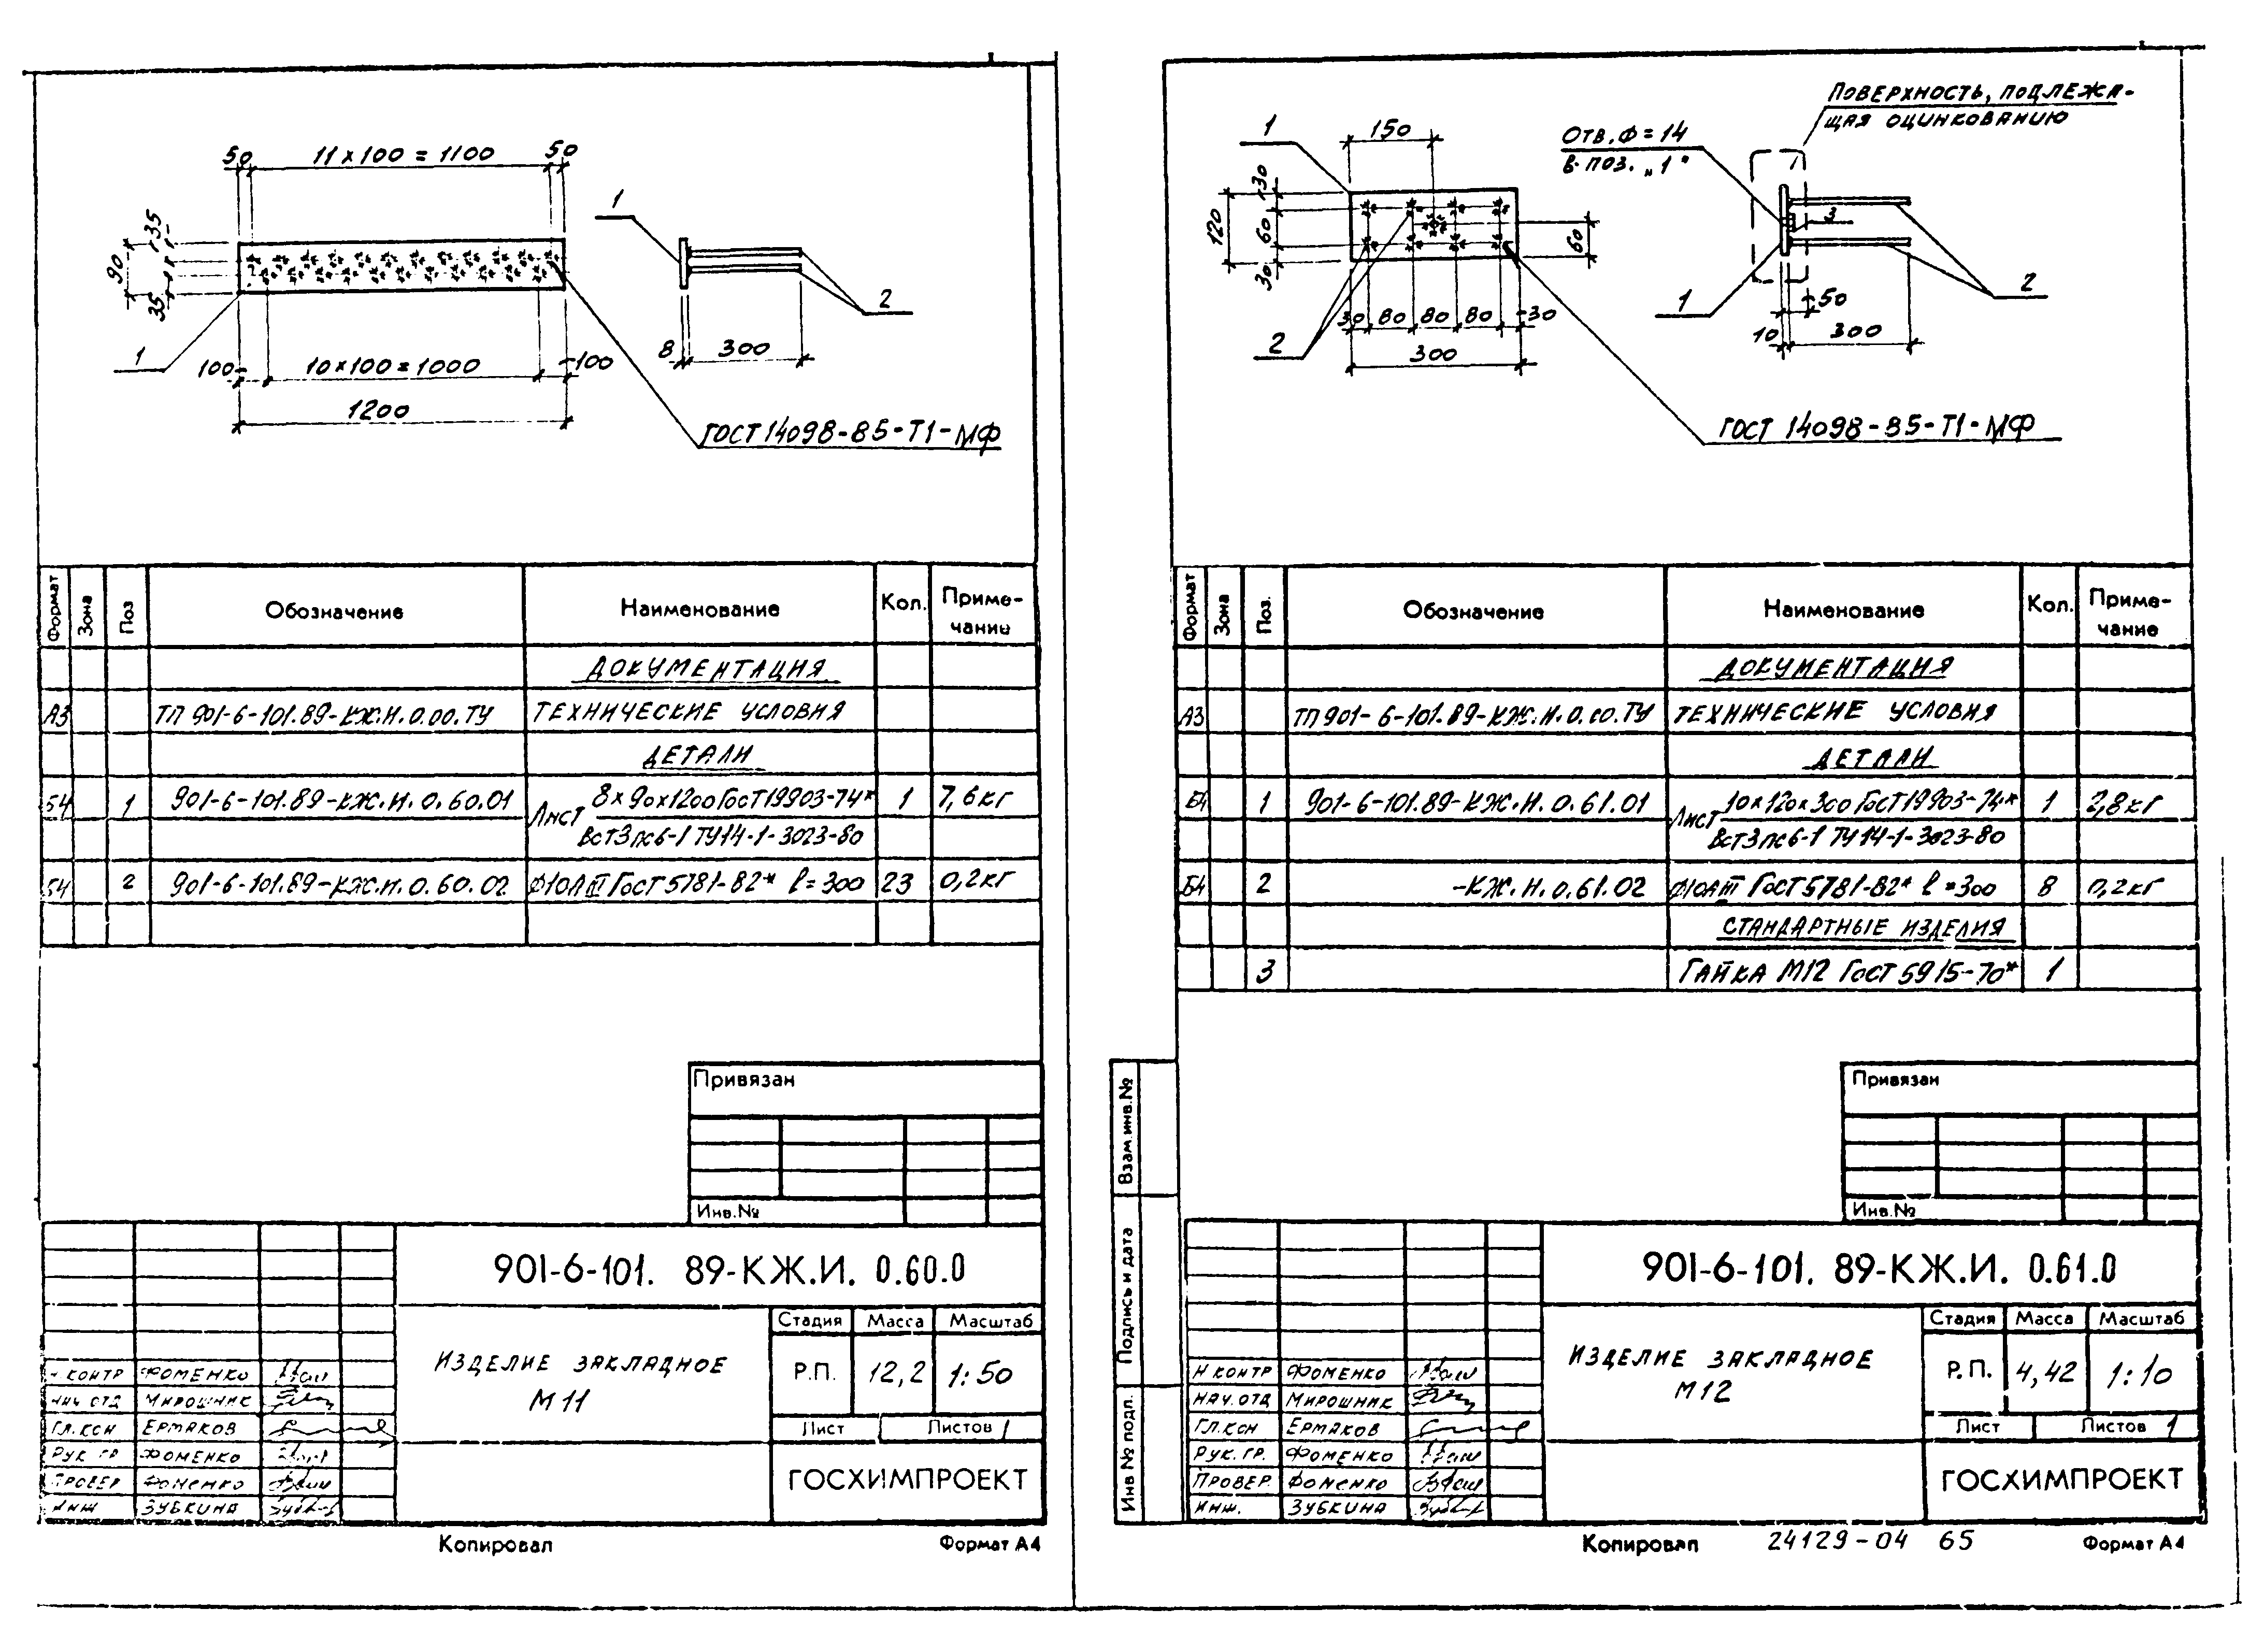 50 11×100=1100 50
35
90
35
1
1
2
8 300
100 10×100=1000 100
1200
ГОСТ 14098-85-Т1-МФ
Формат
Зона
Поз
Обозначение
Наименование
Кол.
Приме-
чание
ДОКУМЕНТАЦИЯ
А3 ТП 901-6-101.89-КЖ.И.0.00.ТУ ТЕХНИЧЕСКИЕ УСЛОВИЯ
ДЕТАЛИ
Б4 1 901-6-101.89-КЖ.И.0.60.01 Лист 8×90×1200 ГОСТ 19903-74* 1 7,6кг
ВСт3пс6-1 ТУ14-1-3023-80
Б4 2 901-6-101.89-КЖ.И.0.60.02 Ф10АIII ГОСТ 5781-82* ℓ=300 23 0,2кг
Привязан
Инв.№
901-6-101. 89-КЖ.И. 0.60.0
ИЗДЕЛИЕ ЗАКЛАДНОЕ
М11
Стадия Масса Масштаб
Р.П. 12,2 1:50
Лист Листов 1
ГОСХИМПРОЕКТ
Н КОНТР ФОМЕНКО
НАЧ ОТД МИРОШНИК
ГЛ.КОН ЕРМАКОВ
РУК ГР ФОМЕНКО
ПРОВЕР ФОМЕНКО
ИНЖ ЗУБКИНА
Копировал Формат А4
ПОВЕРХНОСТЬ, ПОДЛЕЖА-
ЩАЯ ОЦИНКОВАНИЮ
1
150
ОТВ. Ф=14
В ПОЗ. „1"
30
120
60
30
60
3
2
1
2
30 80 80 80 30
300
50
10 300
ГОСТ 14098-85-Т1-МФ
Формат
Зона
Поз.
Обозначение
Наименование
Кол.
Приме-
чание
ДОКУМЕНТАЦИЯ
А3 ТП 901-6-101.89-КЖ.И.0.00.ТУ ТЕХНИЧЕСКИЕ УСЛОВИЯ
ДЕТАЛИ
Б4 1 901-6-101.89-КЖ.И.0.61.01 Лист 10×120×300 ГОСТ 19903-74* 1 2,8кг
ВСт3пс6-1 ТУ14-1-3023-80
Б4 2 -КЖ.И.0.61.02 Ф10АIII ГОСТ 5781-82* ℓ=300 8 0,2кг
СТАНДАРТНЫЕ ИЗДЕЛИЯ
3 ГАЙКА М12 ГОСТ 5915-70* 1
Привязан
Инв.№
Взам.инв.№
Подпись и дата
Инв № подл.
901-6-101. 89-КЖ.И. 0.61.0
ИЗДЕЛИЕ ЗАКЛАДНОЕ
М12
Стадия Масса Масштаб
Р.П. 4,42 1:10
Лист Листов 1
ГОСХИМПРОЕКТ
Н КОНТР ФОМЕНКО
НАЧ.ОТД МИРОШНИК
ГЛ.КОН ЕРМАКОВ
РУК.ГР. ФОМЕНКО
ПРОВЕР. ФОМЕНКО
ИНЖ. ЗУБКИНА
Копировал 24129-04 65 Формат А4